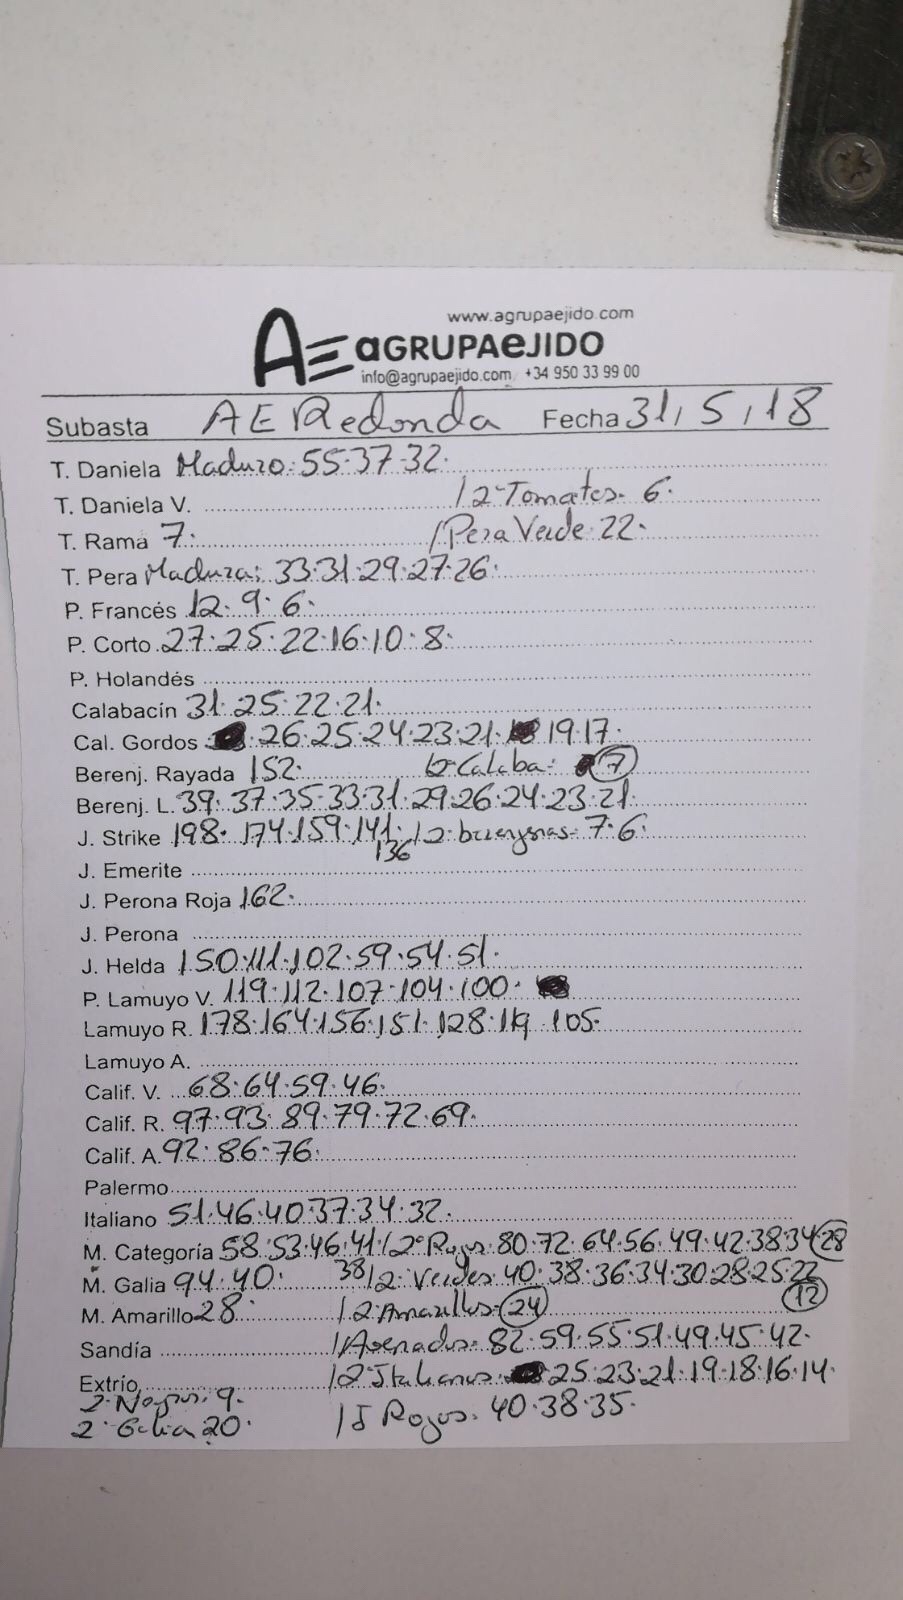 www.agrupaejido.com
AE aGRUPAeJIDO
info@agrupaejido.com +34 950 33 99 00
Subasta AE Redonda Fecha 31, 5, 18
T. Daniela Maduro 55·37·32·
T. Daniela V. /2ª Tomates 6·
T. Rama 7· /Pera Verde 22·
T. Pera Madura: 33·31·29·27·26·
P. Francés 12·9·6·
P. Corto 27·25·22·16·10·8·
P. Holandés
Calabacín 31·25·22·21·
Cal. Gordos 26·25·24·23·21· 19·17·
Berenj. Rayada 152· Calaba: 7
Berenj. L. 39·37·35·33·31·29·26·24·23·21·
J. Strike 198·174·159·141· /2ª 7·6·
136
J. Emerite
J. Perona Roja 162·
J. Perona
J. Helda 150·111·102·59·54·51·
P. Lamuyo V. 119·112·107·104·100·
Lamuyo R. 178·164·156·151·128·119·105·
Lamuyo A.
Calif. V. 68·64·59·46·
Calif. R. 97·93·89·79·72·69·
Calif. A. 92·86·76·
Palermo
Italiano 51·46·40·37·34·32·
M. Categoría 58·53·46·41 /2ª Rojos 80·72·64·56·49·42·38·34 28
M. Galia 94·40· 38 /2ª Verdes 40·38·36·34·30·28·25·22
12
M. Amarillo 28· /2ª Amarillos 24
Sandía /Asenados 82·59·55·51·49·45·42·
Extrío /2ª Italianos 25·23·21·19·18·16·14·
2ª 9·
2ª Galia 20· / Rojos 40·38·35·